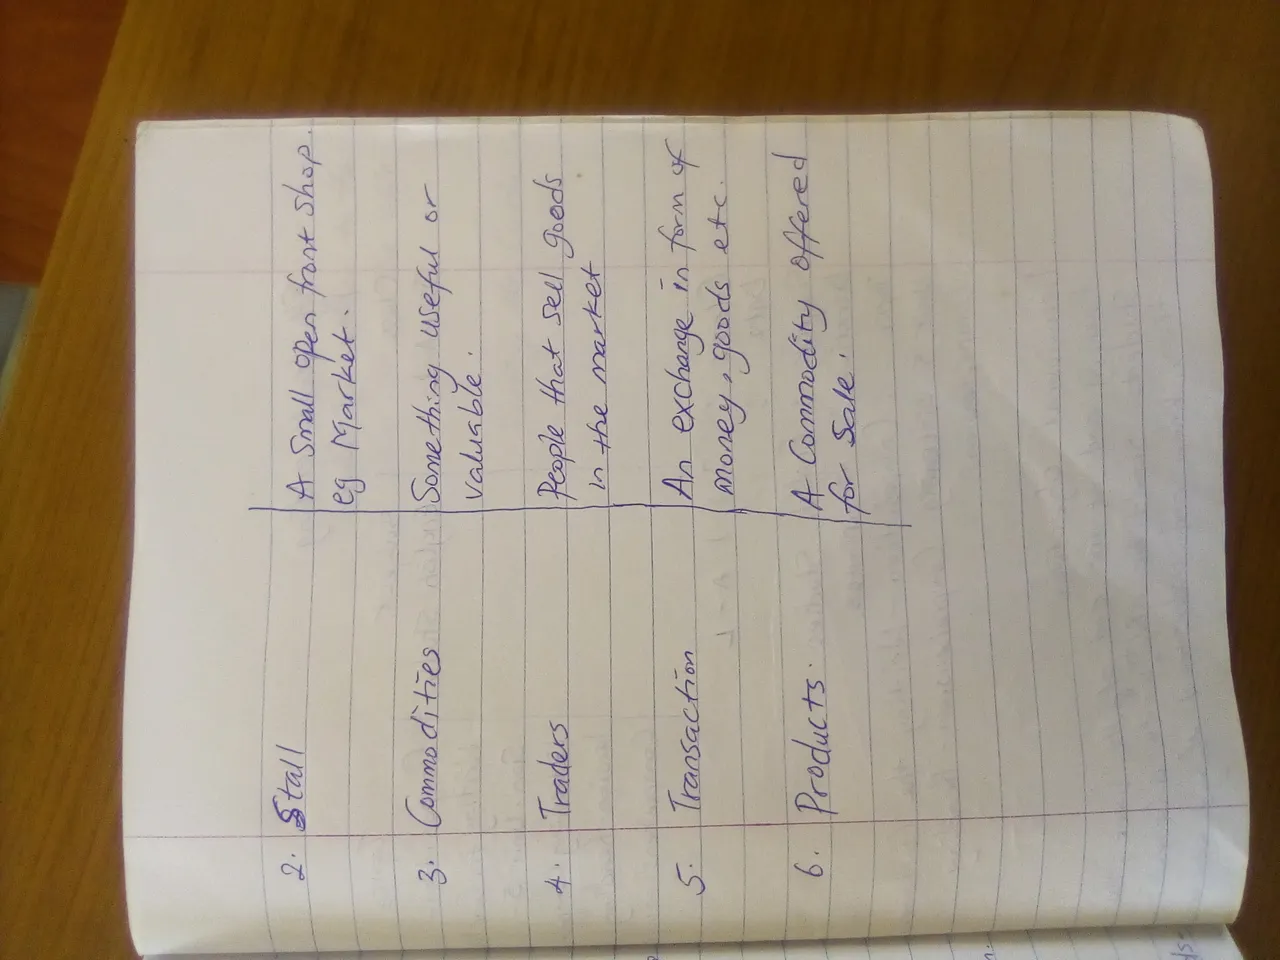 2. Stall A Small open front shop
eg Market.
3. Commodities Something useful or
valuable.
4. Traders People that sell goods
in the market
5. Transaction An exchange in form of
money, goods etc.
6. Products. A Commodity offered
for Sale.